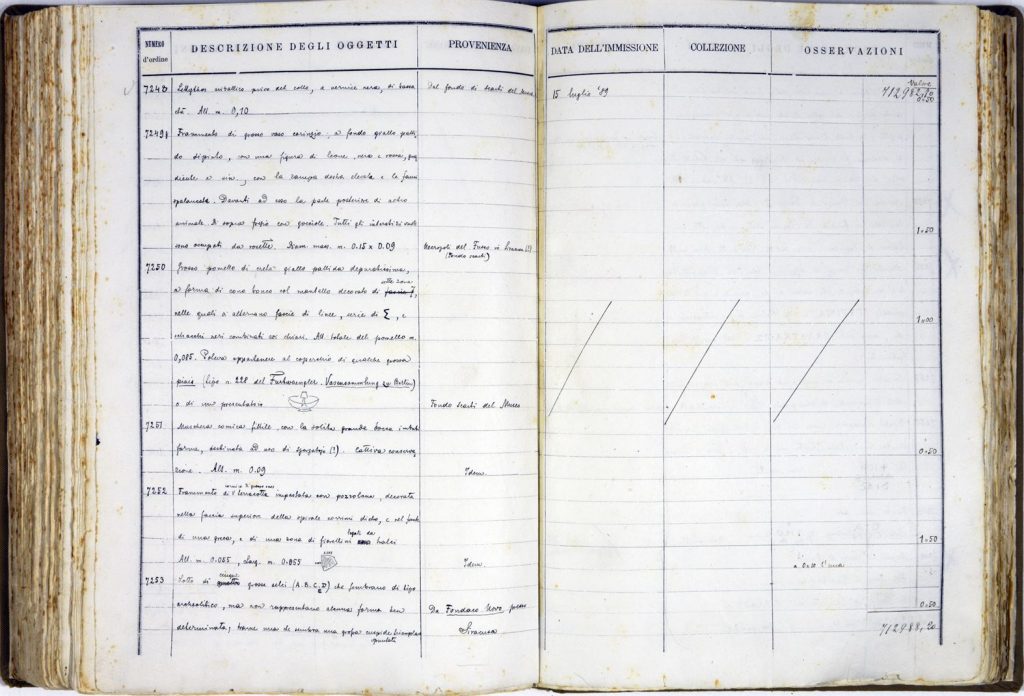 NUMERO d'ordine
DESCRIZIONE DEGLI OGGETTI
PROVENIENZA
DATA DELL'IMMISSIONE
COLLEZIONE
OSSERVAZIONI
Valore
7248 Lekythos metallico privo del collo, a vernice nera, di bassa
Dal fondo di scarti del Museo
15 luglio '89
712982,20
0=50
età. Alt. m. 0,10
7249 Frammento di grosso vaso corinzio: a fondo giallo palli
do dipinto, con una figura di leone, nera e rossa, gra
diente a sin., con la zampa destra elevata e le fauci
spalancate. Davanti ad esso la parte posteriore di altro
animale. Di sopra fregio con gocciole. Tutti gli interstizi vuoti
1=50
sono occupati da rosette. Diam. mass. m. 0.15 x 0.09
Necropoli del Fusco in Siracusa (?)
(Fondo scarti)
7250 Grosso pomello di creta giallo pallida depuratissima,
a forma di cono tronco col mantello decorato di sette zone,
nelle quali si alternano fascie di linee, serie di Σ, e
1=00
scacchi neri combinati coi chiari. Alt. totale del pomello m.
0,085. Poteva appartenere al coperchio di qualche grossa
pisside (tipo n. 228 del Furtwaengler. Vasensammlung zu Berlin)
o di un
Fondo scarti del Museo
7251 Maschera comica fittile, con la solita grande bocca imbuti
forme, destinata ad uso di (?). Cattiva conserva
0=50
zione. Alt. m. 0.09
Idem
cornice di grosso vaso
7252 Frammento di terracotta impastata con pozzolana, decorata
nella faccia superior. della spirale corrimi dietro, e nel fronte
di una greca, e di una zona di fiorellini legati da tralci
1=50
Alt. m. 0.055, Lung. m. 0.055
Idem
a 0=10 l'una
7253 Lotto di cinque grosse selci (A.B.C.D.E) che sembrano di tipo
archeolitico, ma non rappresentano alcuna forma ben
Da Fondaco Novo, presso
0=50
determinata; tranne una che sembra una grossa cuspide triangolare
spuntata
Siracusa
712988,20